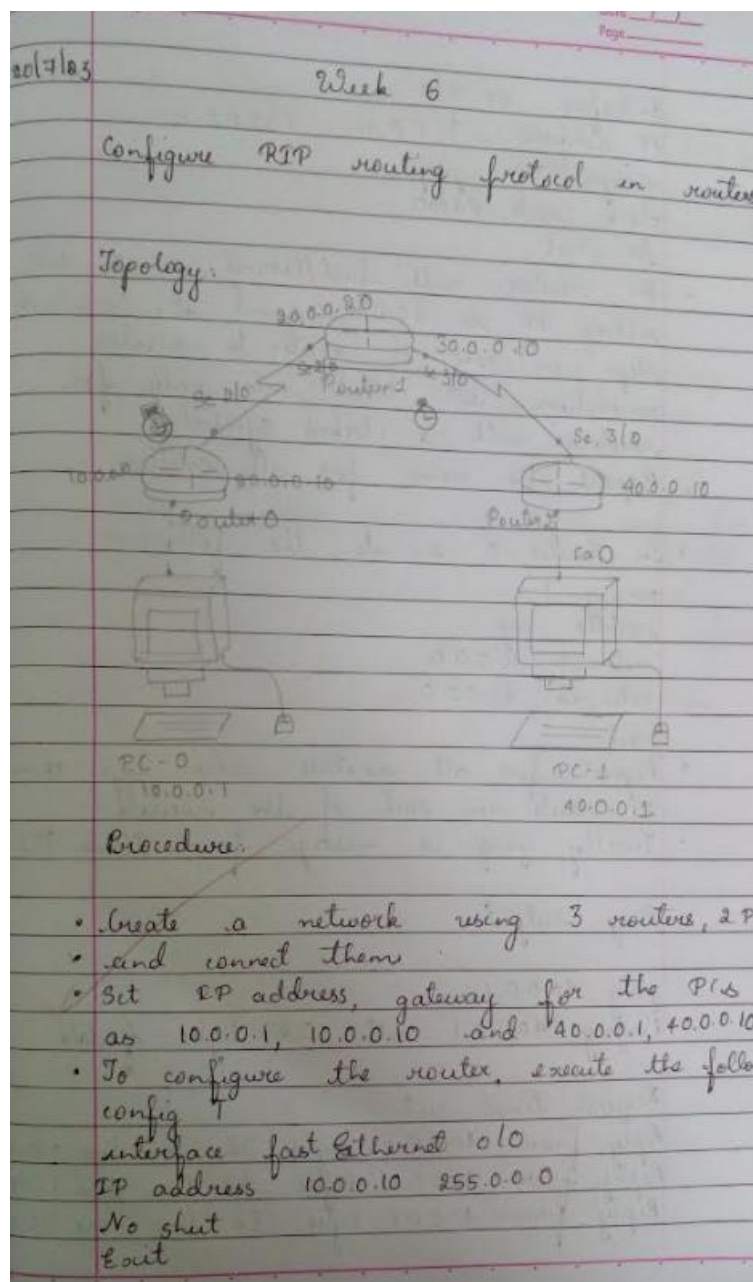 Page
20/7/23
Week 6
Configure RIP routing protocol in routers
Topology:
20.0.0.20
30.0.0.10
Router1
Se 2/0
Se 3/0
Se 2/0
Se 3/0
10.0.0.10
20.0.0.10
40.0.0.10
Router 0
Router 2
Fa0
PC-0
10.0.0.1
PC-1
40.0.0.1
Procedure:
• Create a network using 3 routers, 2 P
• and connect them
• Set IP address, gateway for the PCs
as 10.0.0.1, 10.0.0.10 and 40.0.0.1, 40.0.0.10
• To configure the router, execute the follo
config T
interface fast Ethernet 0/0
IP address 10.0.0.10 255.0.0.0
No shut
Exit